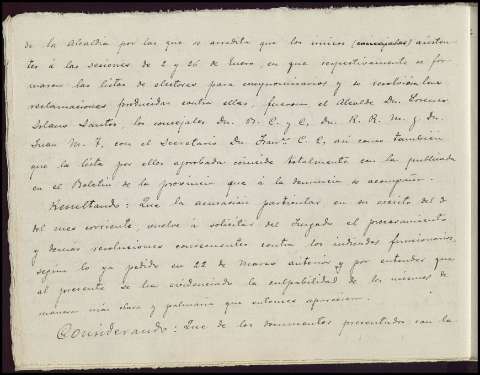 de la Alcaldía por las que se acredita que los únicos (concejales) asisten-
tes á las sesiones de 2 y 26 de Enero, en que respectivamente se for-
maron las listas de electores para compromisarios y se resolvieron las
reclamaciones producidas contra ellas, fueron el Alcalde Dn. Lorenzo
Solano Santos, los concejales Dn. B. C. y C, Dn. R. R. M. y Dn.
Juan M. F. con el Secretario Dn. Franco. C. E, así como también
que la lista por ellos aprobada coincide totalmente con la publicada
en el Boletín de la provincia que á la denuncia se acompaña.
Resultando: Que la acusación particular en su escrito del 3
del mes corriente, vuelve á solicitar del Juzgado el procesamiento
y demás resoluciones consecuentes contra los indicados funcionarios,
segun lo ya pedido en 22 de Marzo anterior y por entender que
al presente se ha evidenciado la culpabilidad de los mismos de
manera más clara y palmaria que entonces aparecían.
Considerando: Que de los documentos presentados con la